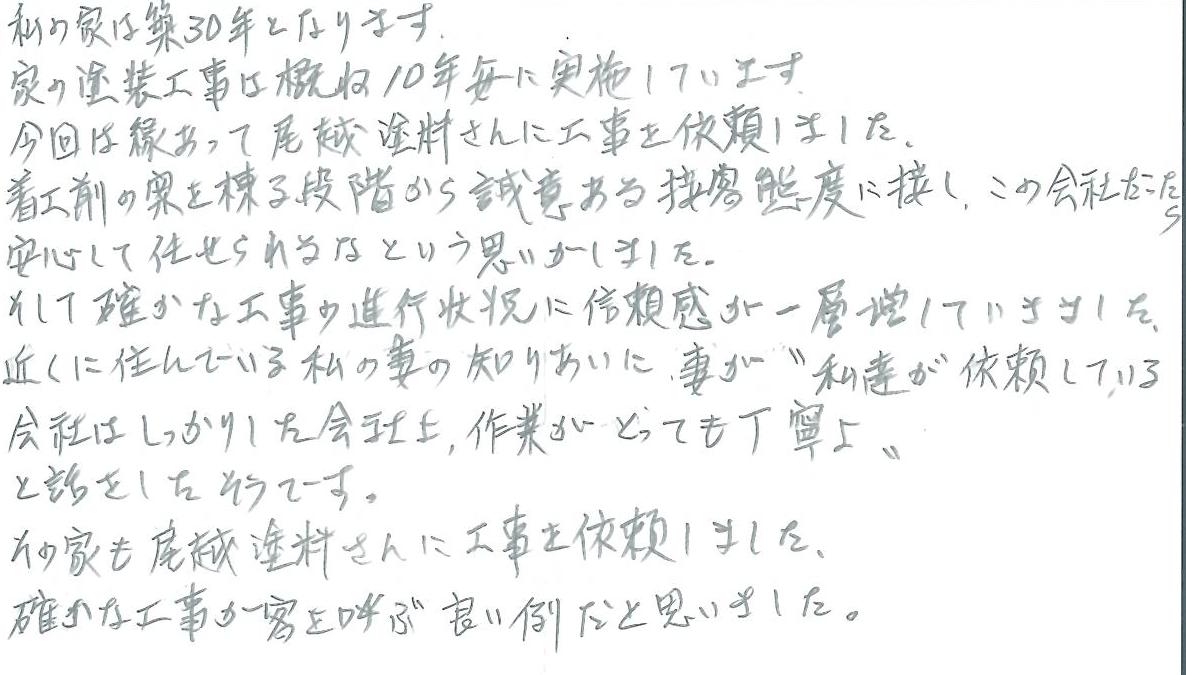 私の家は築30年となります.
家の塗装工事は概ね10年毎に実施しています
今回は縁あって尾越塗料さんに工事を依頼しました。
着工前の案を棟る段階から誠意ある接客態度に接し、この会社だったら
安心して任せられるなという思いがしました。
そして確かな工事の進行状況に信頼感が一層増していきました、
近くに住んでいる私の妻の知りあいに、妻が〝私達が依頼している
会社はしっかりした会社よ,作業がとっても丁寧よ〟
と話をしたそうです。
その家も尾越塗料さんに工事を依頼しました、
確かな工事が客を呼ぶ良い例だと思いました。